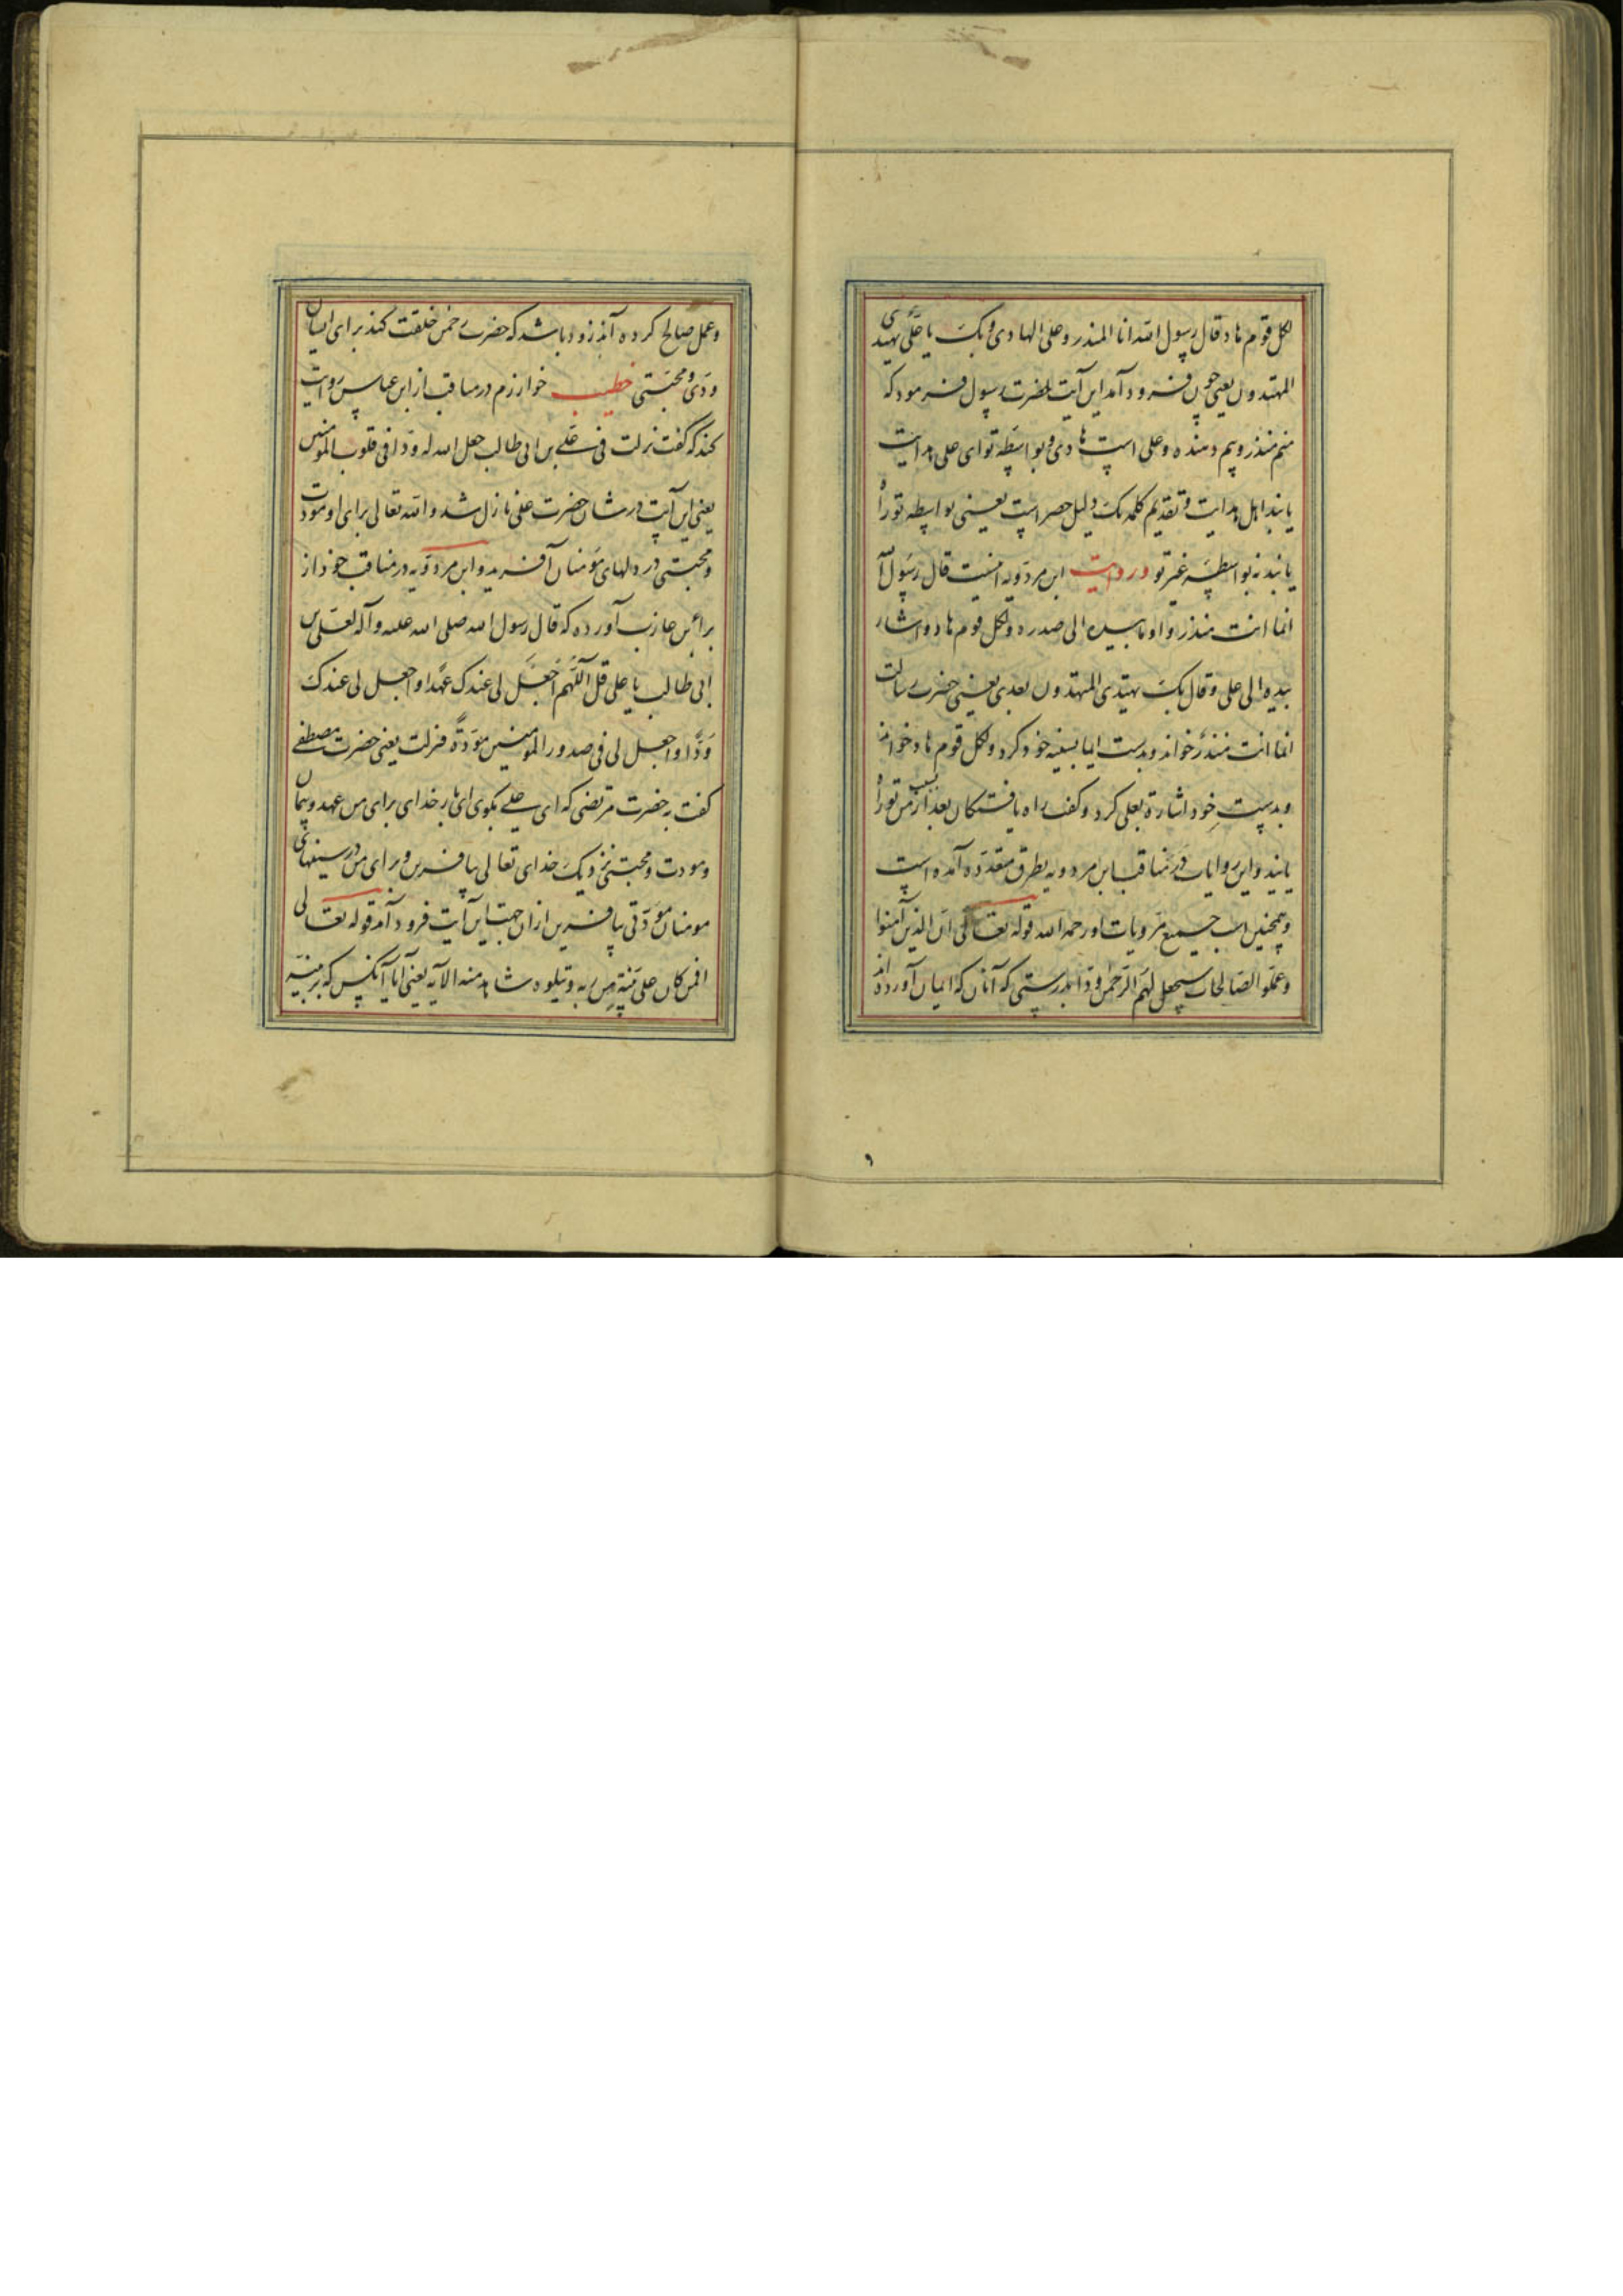 لکل قوم هاد قال رسول الله انا المنذر و علی الهادی و بک یا علی یهتدی
المهتدون یعنی چون فرود آمد این آیت حضرت رسول فرمود که
منم منذر و بیم دهنده و علی است هادی و بواسطه تو ای علی هدایت
یابند اهل هدایت و تقدیم کلمه بک دلیل حصر است یعنی بواسطه تو راه
یابند نه بواسطه غیر تو و روایت ابن مردویه اینست قال رسول الله
انما انت منذر و اومأ بیده الی صدره و لکل قوم هاد و اشار
بیده الی علی و قال بک یهتدی المهتدون بعدی یعنی حضرت رسالت
انما انت منذر خواند و بدست ایما بسینه خود کرد و لکل قوم هاد خواند
و بدست خود اشارة بعلی کرد و گفت راه یافتگان بعد از من بسبب تو راه
یابند و این روایات در مناقب ابن مردویه بطرق متعدده آمده است
و همچنین است جمیع مرویات او رحمه الله قوله تعالی ان الذین آمنوا
و عملوا الصالحات سیجعل لهم الرحمن ودا بدرستی که آنان که ایمان آورده اند
و عمل صالح کرده آند زود باشد که حضرت رحمن خلقت کند برای ایشان
ودی و محبتی خطیب خوارزم در مناقب از ابن عباس روایت
کند که گفت نزلت فی علی بن ابی طالب جعل الله له ودا فی قلوب المومنین
یعنی این آیت در شان حضرت علی نازل شد و الله تعالی برای او مودت
و محبتی در دلهای مؤمنان آفرید و ابن مردویه در مناقب خود از
براء بن عازب آورده که قال رسول الله صلی الله علیه و آله لعلی بن
ابی طالب یا علی قل اللهم اجعل لی عندک عهدا و اجعل لی عندک
ودا و اجعل لی فی صدور المومنین مودة فنزلت یعنی حضرت مصطفی
گفت به حضرت مرتضی که ای علی بگوی ای بار خدای برای من عهد و پیمان
و مودت و محبتی نزدیک خدای تعالی بیافرین و برای من در سینهای
مومنان مودتی بیافرین ازان جهت این آیت فرود آمد قوله تعالی
افمن کان علی بینة من ربه و یتلوه شاهد منه الآیه یعنی آیا آنکس که بر بینه